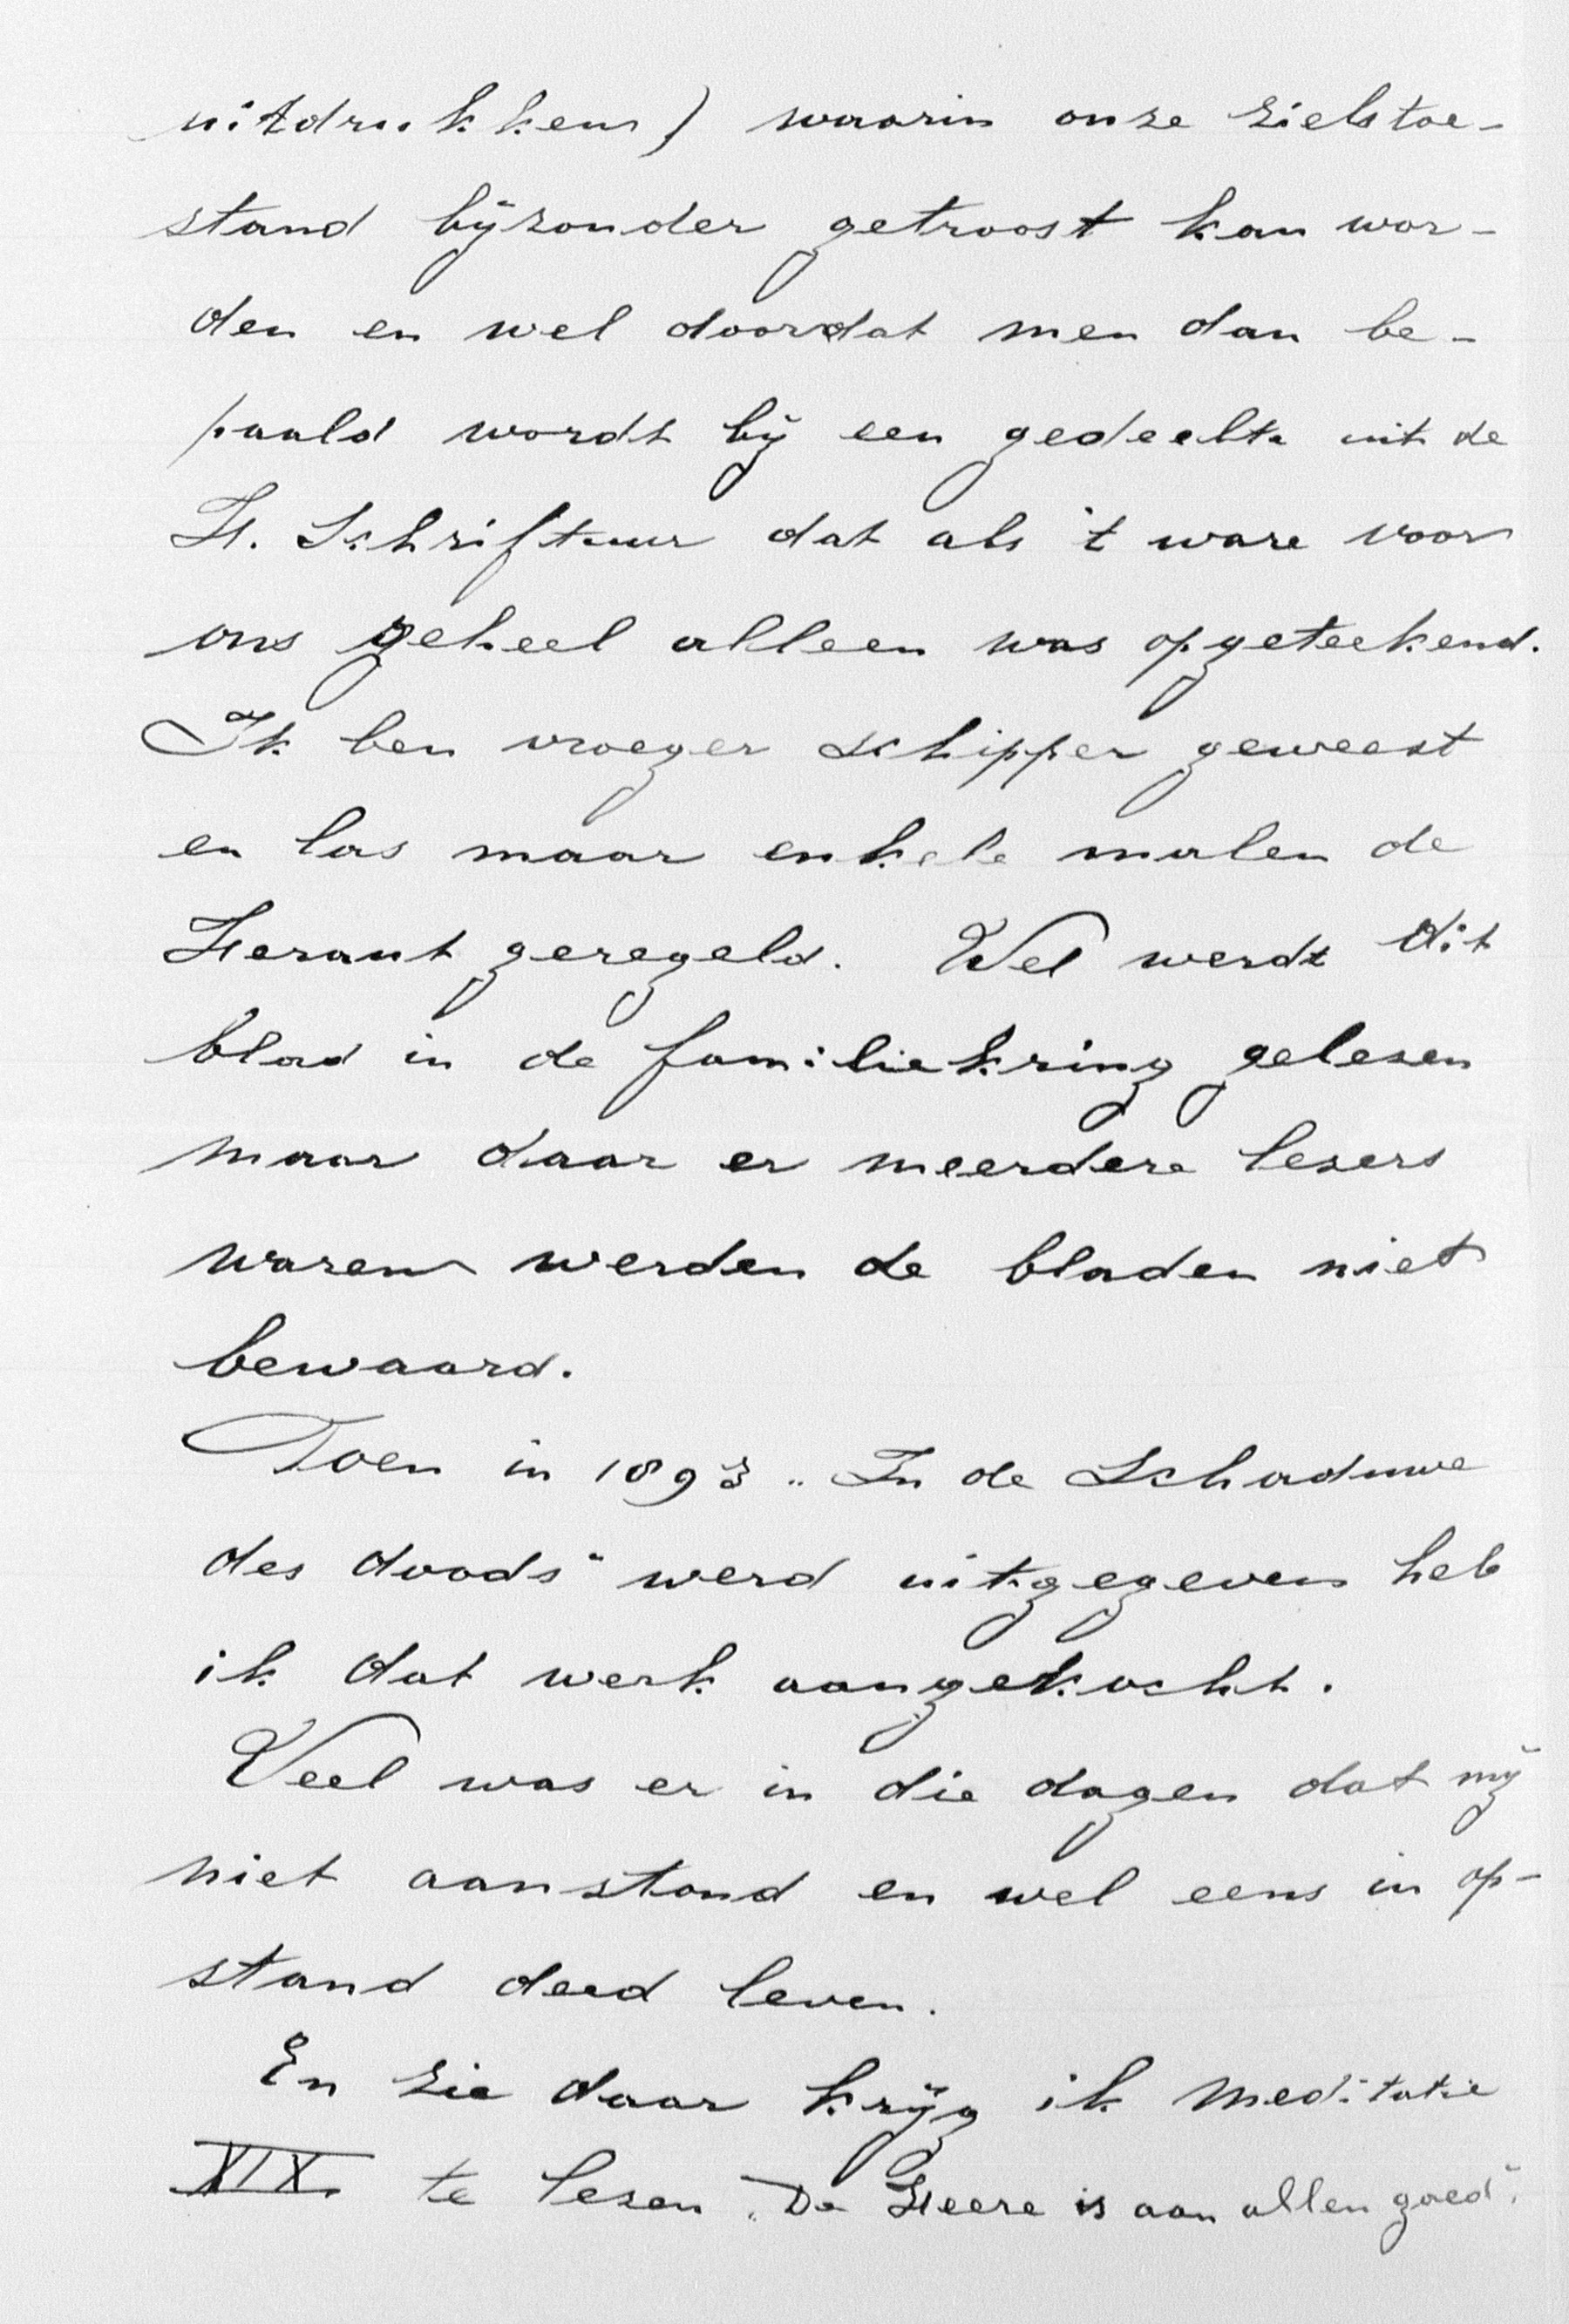 uitdrukken) waarin onze zielstoe-
stand bijzonder getroost kan wor-
den en wel doordat men dan be-
paald wordt bij een gedeelte uit de
H. Schriftuur dat als 't ware voor
ons geheel alleen was opgeteekend.
Ik ben vroeger schipper geweest
en las maar enkele malen de
Heraut geregeld. Wel werdt dit
blad in de familiekring gelezen
maar daar er meerdere lezers
waren werden de bladen niet
bewaard.
Toen in 1893 „In de Schaduwe
des doods" werd uitgegeven heb
ik dat werk aangekocht.
Veel was er in die dagen dat mij
niet aanstond en wel eens in op-
stand deed leven.
En zie daar krijg ik meditatie
XIX te lezen „De Heere is aan allen goed".